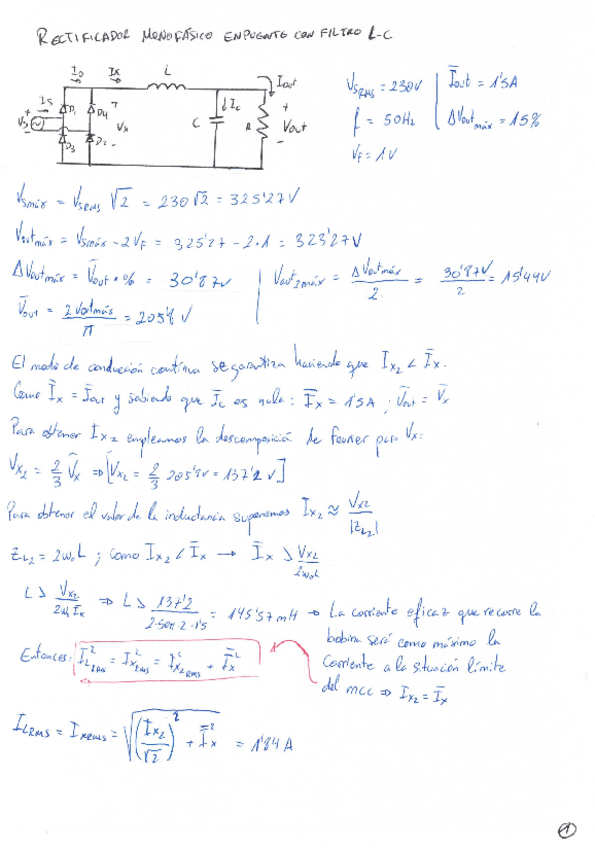 RECTIFICADOR MONOFÁSICO EN PUENTE CON FILTRO L-C
I_D I_X L I_out
V_S_RMS = 230V Ī_out = 1'5A
I_S D_1 D_4 + V_X C ↓I_C R + V_out
V_S D_3 D_2 - -
f = 50Hz ΔV_out_máx = 15%
V_F = 1V
V_Smáx = V_S_RMS √2 = 230√2 = 325'27V
V_out_máx = V_Smáx - 2V_F = 325'27 - 2·1 = 323'27V
ΔV_out_máx = V̄_out · % = 30'87V V_out_2máx = ΔV_out_máx / 2 = 30'87V / 2 = 15'44V
V̄_out = 2V_out_máx / π = 205'8 V
El modo de conducción continua se garantiza haciendo que I_X2 < Ī_X.
Como Ī_X = Ī_out y sabiendo que Ī_C es nula: Ī_X = 1'5A ; V̄_out = V̄_X
Para obtener I_X2 empleamos la descomposición de fourier para V_X:
V_X2 = 2/3 V̄_X ⇒ [V_X2 = 2/3 205'8V = 137'2 V]
Para obtener el valor de la inductancia suponemos I_X2 ≈ V_X2 / |Z_L2|
Z_L2 = 2ω_0L ; como I_X2 < Ī_X → Ī_X > V_X2 / 2ω_0L
L > V_X2 / 2ω_0 Ī_X ⇒ L > 137'2 / 2·50π·2·1'5 = 145'57 mH → La corriente eficaz que recorre la
bobina será como máximo la
Entonces: I²_L_RMS = I²_X_RMS = I²_X2_RMS + Ī_X²
corriente a la situación límite
del mcc ⇒ I_X2 = Ī_X
I_LRMS = I_XRMS = √((I_X2 / √2)² + Ī_X²) = 1'84 A
1